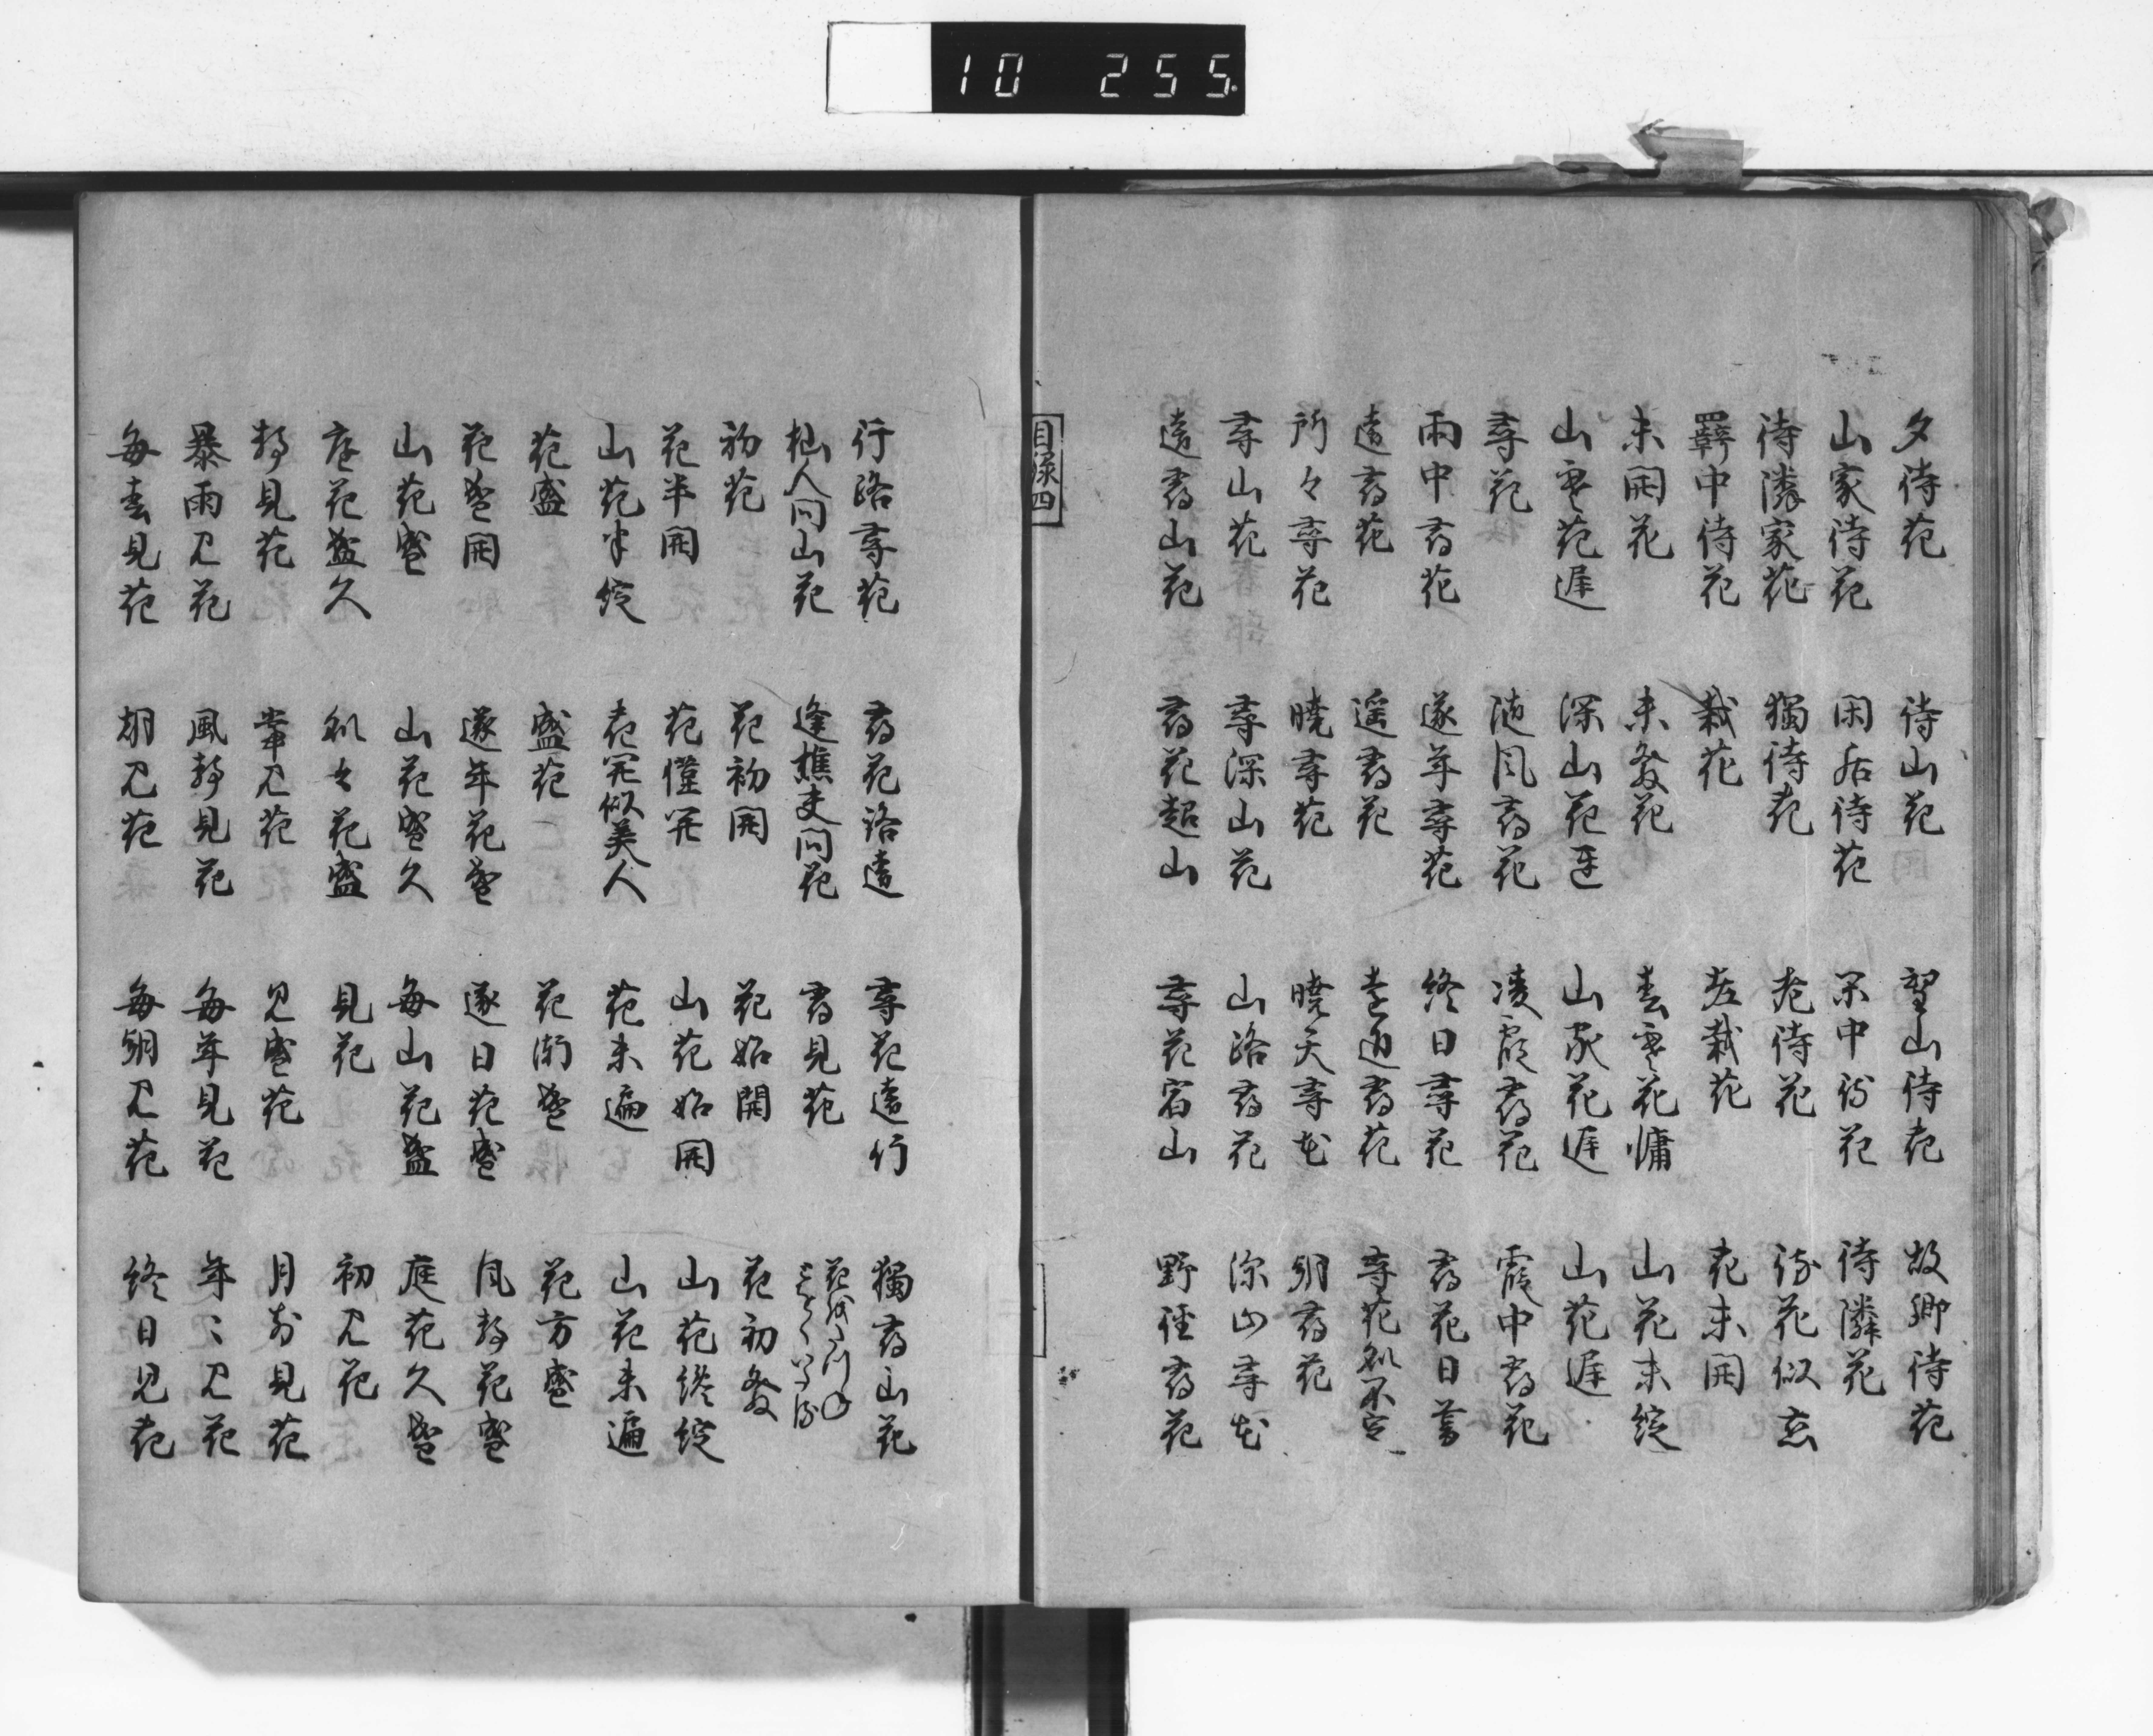 10 255
夕待花 待山花 望山待花 故郷待花
山家待花 閑居待花 閑中待花 待隣花
待隣家花 獨待花 老待花 待花似恋
羇中待花 栽花 花未開
未開花 未発花 春寒花慵 山花未綻
山寒花遅 深山花遅 山家花遅 山花遅
尋花 随風尋花 凌霞尋花 霞中尋花
雨中尋花 逐年尋花 終日尋花 尋花日暮
遠尋花 遥尋花 遠近尋花 尋花処不定
所々尋花 暁尋花 暁天尋花 朝尋花
尋山花 尋深山花 山路尋花 深山尋花
遠尋山花 尋花超山 尋花宿山 野径尋花
目録四
行路尋花 尋花路遠 尋花遠行 獨尋山花
杣人問山花 逢樵夫問花 尋見花
初花 花初開 花始開 花初発
花半開 花僅開 山花始開 山花纔綻
山花半綻 花開似美人 花未遍 山花未遍
花盛 盛花 花漸盛 花方盛
花盛開 逐年花盛 逐日花盛 風静花盛
山花盛 山花盛久 毎山花盛 庭花久盛
庭花盛久 処々花盛 見花 初見花
静見花 挙見花 見盛花 月前見花
暴雨見花 風静見花 毎年見花 年々見花
毎春見花 朝見花 毎朝見花 終日見花